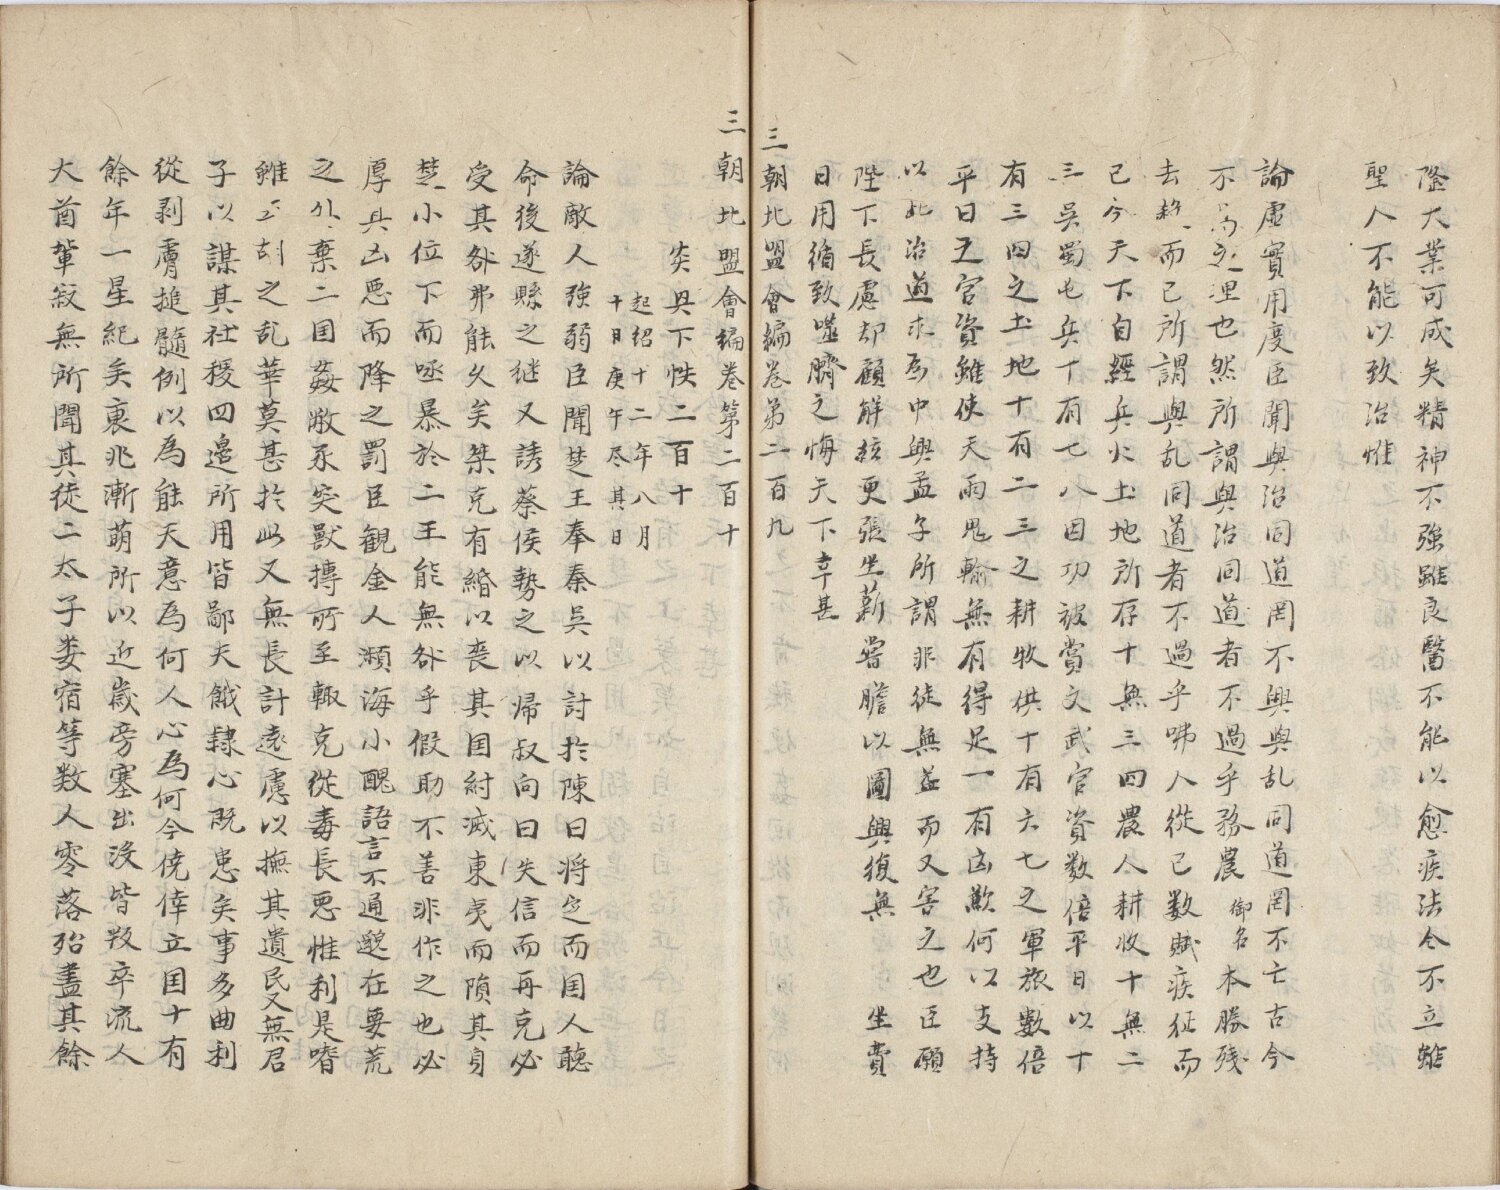 隆大業可成矣精神不強雖良醫不能以愈疾法令不立雖
聖人不能以致治惟
論虛實用度臣聞與治同道罔不興與乱同道罔不亡古今
不易之理也然所謂與治同道者不過乎務農御名本勝殘
去殺而已所謂與乱同道者不過乎咈人從已数賦疾征而
已今天下自經兵火土地所存十無三四農人耕收十無二
三吳蜀屯兵十有七八因功被賞文武官資数倍平日以十
有三四之土地十有二三之耕牧供十有六七之軍旅數倍
平日之官資雖使天雨鬼輸無有得足一有凶歉何以支持
以此治道求為中興孟子所謂非徒無益而又害之也臣願
陛下長慮却顧解絃更張坐薪嘗膽以圖興復無坐費
日用循致噬臍之悔天下幸甚
三朝北盟會編卷第二百九
三朝北盟會編卷第二百十
炎興下帙二百十
起紹十二年八月
十日庚午尽其日
論敵人強弱臣聞楚王奉秦吳以討於陳曰将定而国人聽
命後遂縣之継又誘蔡侯勢之以帰叔向曰失信而再克必
受其咎弗能久矣桀克有緡以喪其国紂滅東夷而隕其身
楚小位下而亟暴於二王能無咎乎假助不善非作之也必
厚其凶恶而降之罰臣観金人瀕海小醜語言不通邈在要荒
之外棄二国姦敵豕突獸摶所至輒克從毒長恶惟利是嗜
雖胡之乱華莫甚於此又無長計遠慮以撫其遺民又無君
子以謀其社稷四邉所用皆鄙夫餓隸心既患矣事多曲利
從剥膚搥髓例以為能天意為何人心為何今僥倖立国十有
餘年一星紀矣衰兆漸萌所以近歲旁塞出没皆叛卒流人
大酋輩寂無所聞其徒二太子娄宿等数人零落殆盡其餘